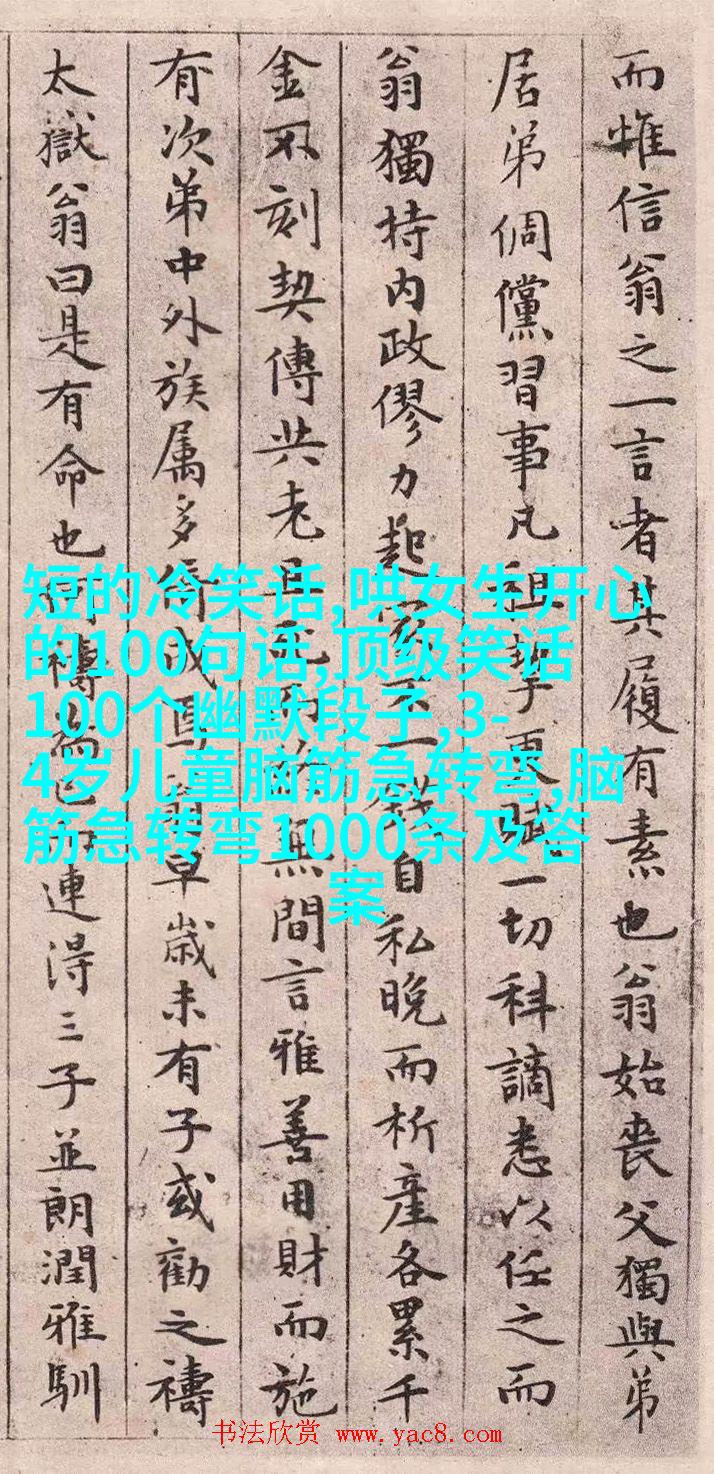 而惟信翁之一言者其履有素也翁始喪父獨與弟
居弟倜儻習事凡租更賦一切科謫悉以任之而
翁獨持内政僇力起家一錢自私晚而析產各累千
金不刻契傳共老且死而無間言雅善用財而施
有次弟中外族属多倚成焉翁早歲未有子或勸之禱
太嶽翁曰是有命也禱連淂三子並朗潤雅馴
短的冷笑话,哄女生开心
的100句话,顶级笑话
100个幽默段子,3-
4岁儿童脑筋急转弯,脑
筋急转弯1000条及答
案
书法欣赏 www.yac8.com